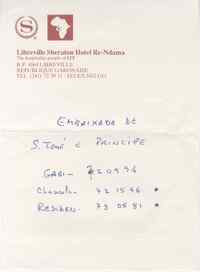 Libreville Sheraton Hotel Re-Ndama
The hospitality people of ITT
LIBREVILLE
REPUBLIQUE GABONAISE
EMBAIXADA DE
S. TOMÉ E PRINCIPE
GABI - 72.09.96
72 15 46
RESIDEN. 73 05 81